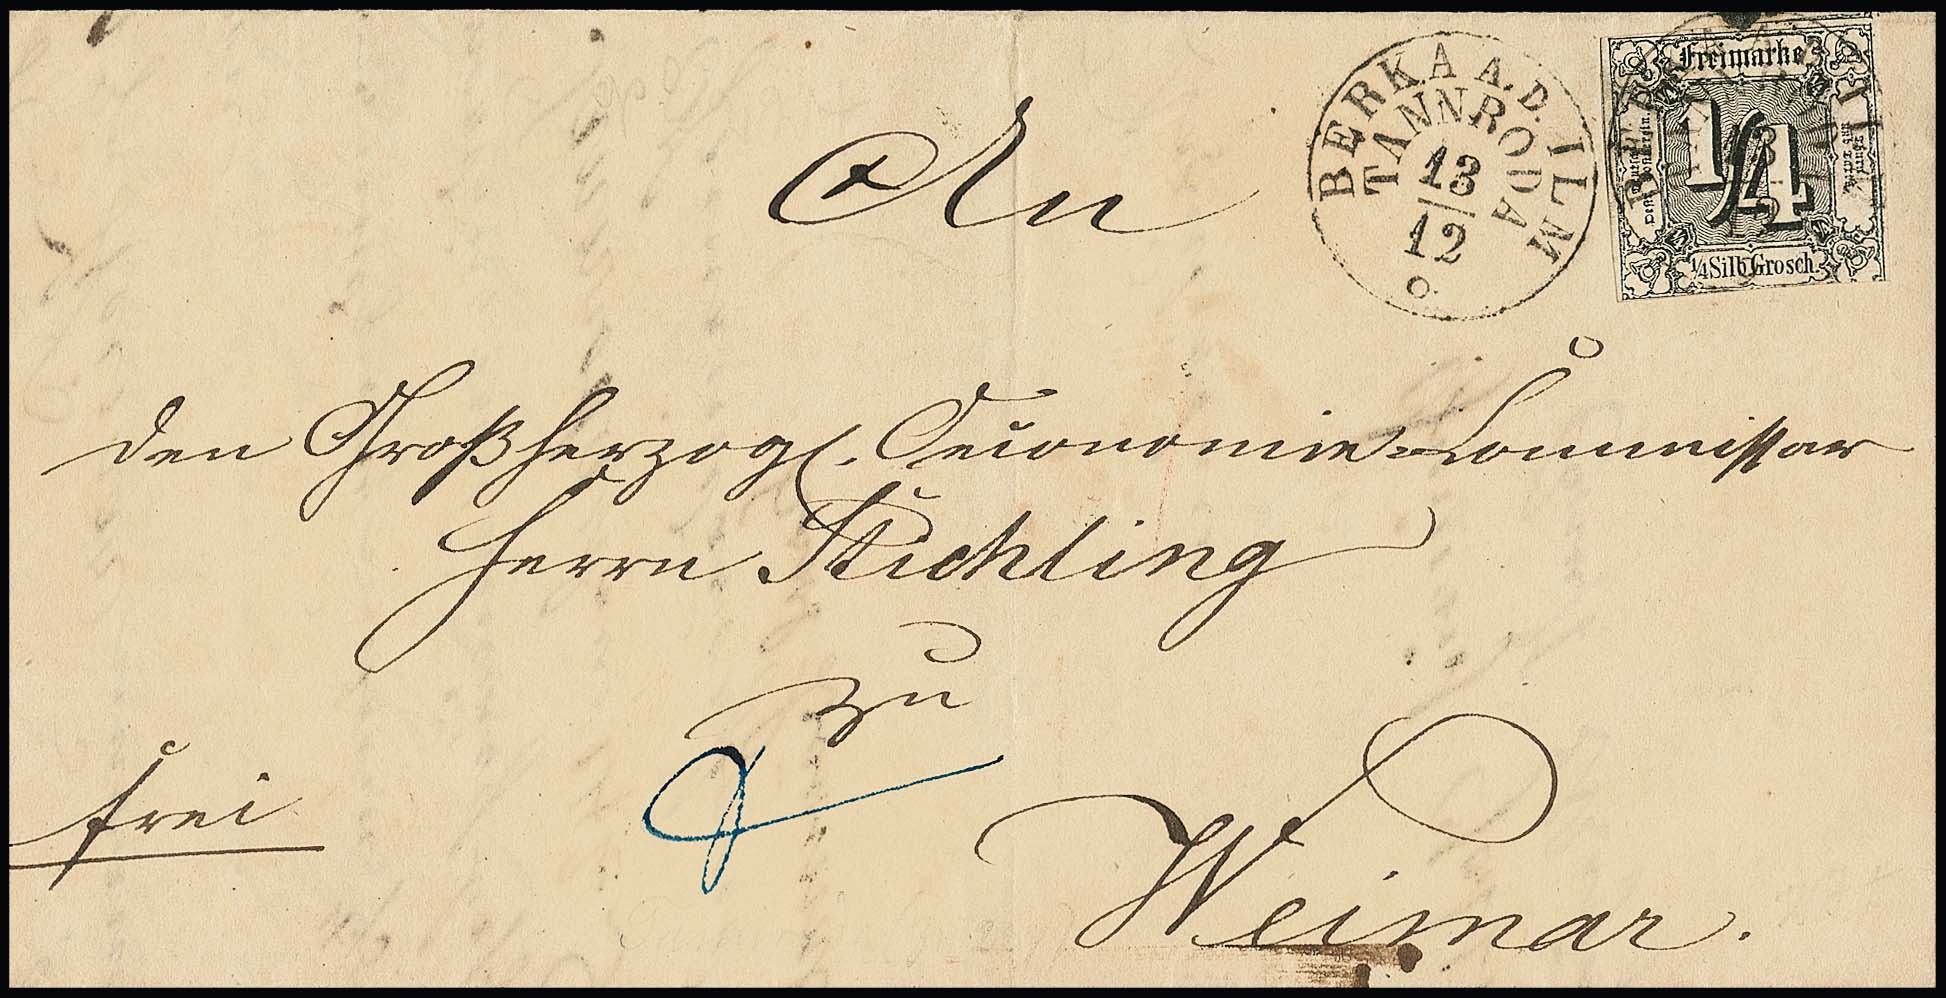 An
BERKA A.D. ILM
TANNRODA
13
12
Freimarke
Deutsch. Oestr. Postverein.
1/4
1/4 Silb. Grosch.
den Großherzogl. Oeconomie-Commissar
Herrn Stichling
zu
frei
Weimar.